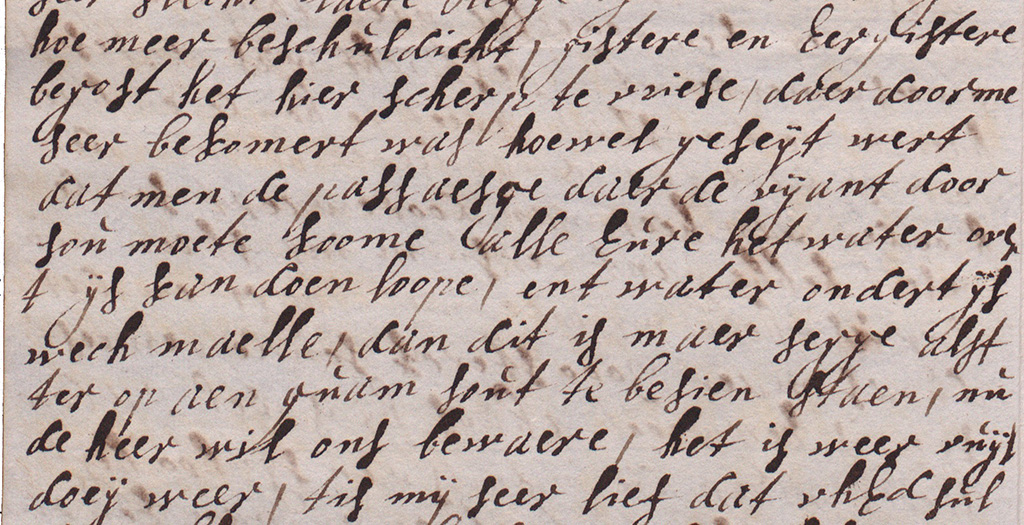 hoe meer beschuldicht, gistere en Eergistere
begost het hier scherp te vriese, daer doorme
seer bekomert was hoewel geseÿt wert
dat men de passaesge daer de vÿant door
sou moete koome alle Eure het water over
t ÿs kan doen loope, ent water ondert ÿs
wech maelle, dan dit is maer segge alst
ter op aen quam sout te besien staen, nu
de heer wil ons bewaere, het is weer vuÿl
doeÿ weer, tis mÿ seer lief dat uhEd sul